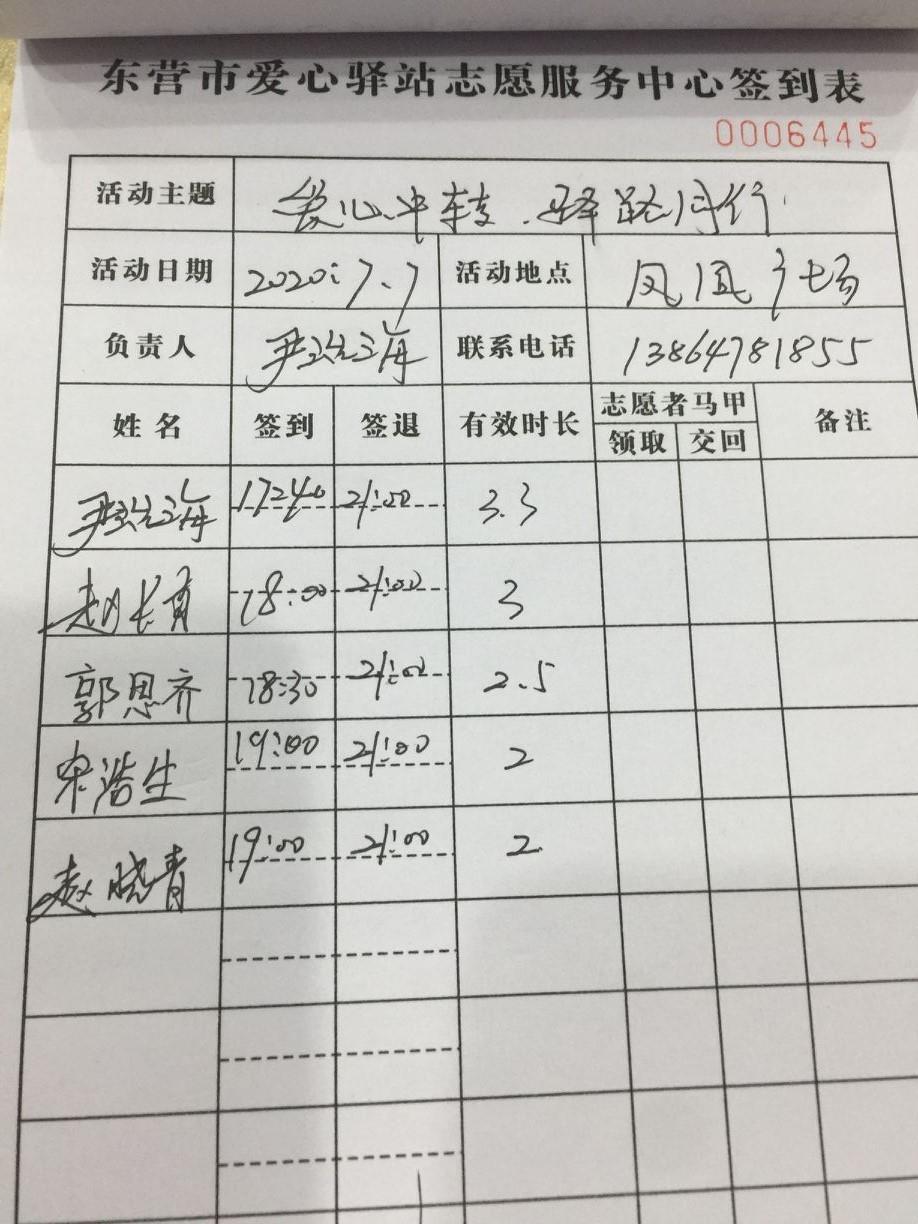 东营市爱心驿站志愿服务中心签到表
0006445
活动主题 爱心中转.驿路同行
活动日期 2020.7.7 活动地点 凤凰广场
负责人 尹 海 联系电话 13864781855
姓名 签到 签退 有效时长 志愿者马甲 备注
领取 交回
尹 海 17:40 21:00 3.3
赵长有 18:00 21:00 3
郭思齐 18:30 21:00 2.5
宋浩生 19:00 21:00 2
赵晓青 19:00 21:00 2